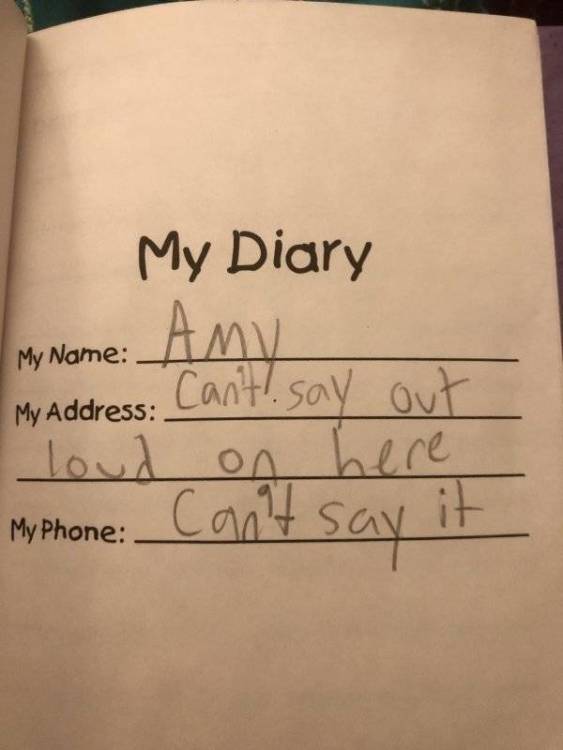 My Diary
My Name: Amy
My Address: Can't! say out
loud on here
My Phone: Can't say it